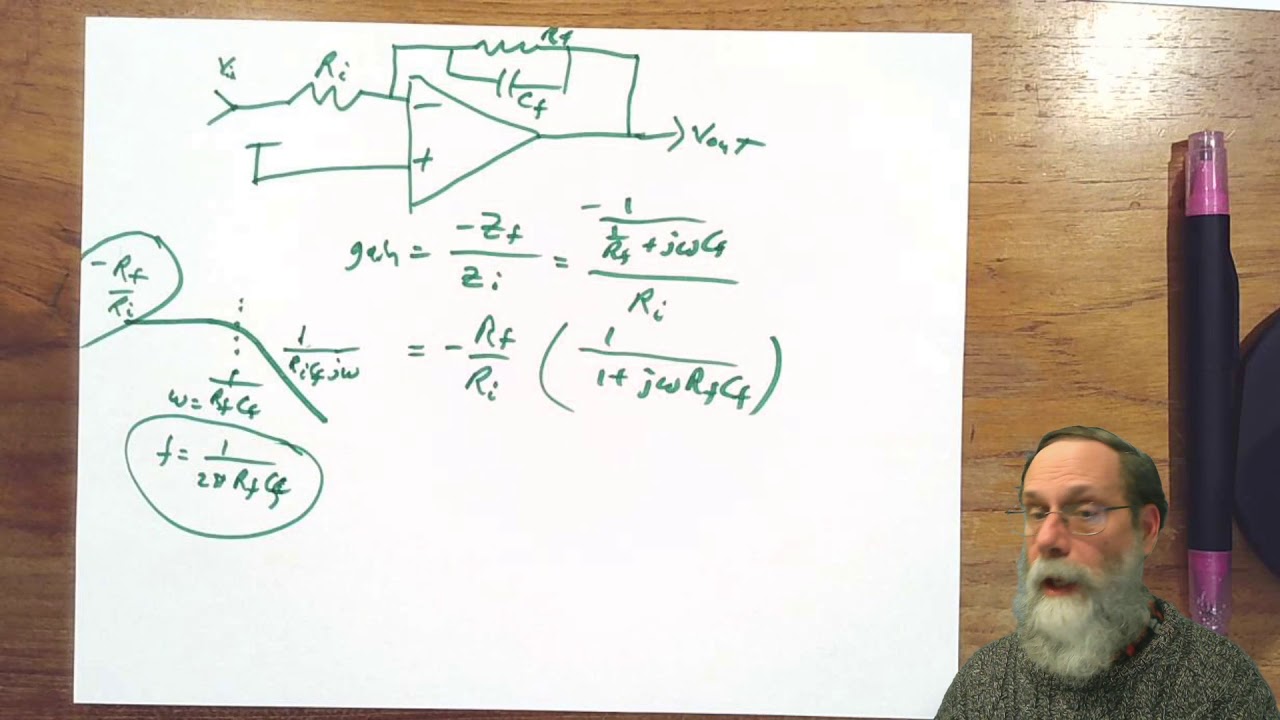 Rf
Vi
Ri
Cf
−
+
Vout
gain = -Zf / Zi = - 1 / (1/Rf + jωCf) / Ri
-Rf / Ri
1 / RiCfjω
= - Rf / Ri ( 1 / 1 + jωRfCf )
ω = 1 / RfCf
f = 1 / 2π RfCf